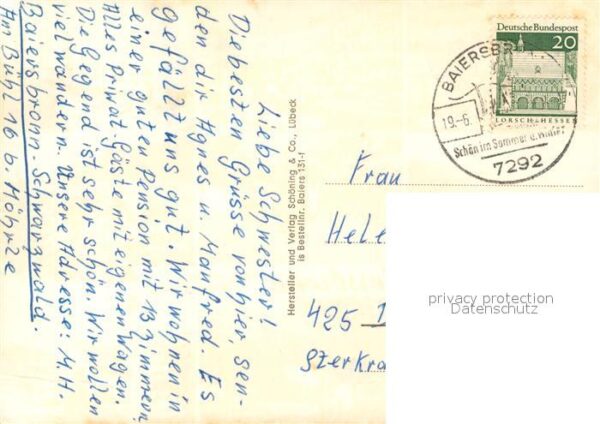 Liebe Schwester!
Die besten Grüsse von hier, sen-
den dir Agnes u. Manfred. Es
gefällt uns gut. Wir wohnen in
einer guten Pension mit 13 Zimmern,
Alles Privat. Gäste mit eigenen Wagen.
Die Gegend ist sehr schön. Wir wollen
viel wandern. Unsere Adresse: M.H.
Baiersbronn-Schwarzwald.
Am Bühl 16 b. Möhrle
Hersteller und Verlag Schöning & Co., Lübeck
is Bestellnr. Baiers 131-f
Deutsche Bundespost
20
LORSCH HESSEN
BAIERSBR
19.-6.
Schön im Sommer u. Winter
7292
Frau
Hele
425
Szerkra
privacy protection
Datenschutz